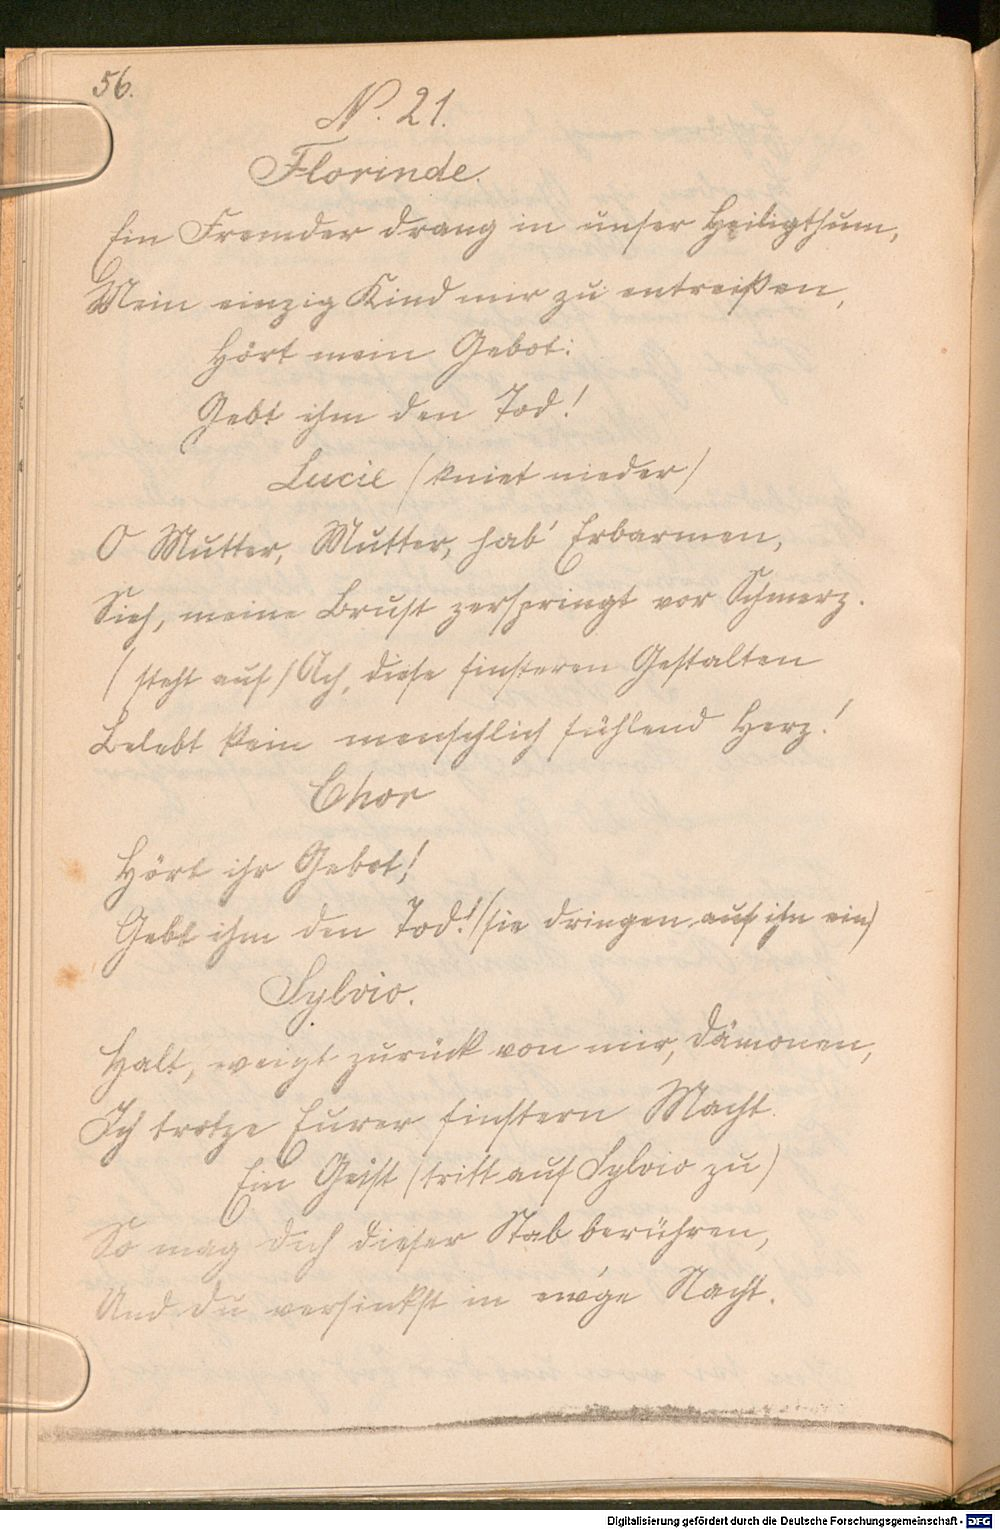 56.
N. 21.
Florinde.
Ein Fremder drang in unser Heiligthum,
Mein einzig Kind mir zu entreißen,
Hört mein Gebot:
Gebt ihm den Tod!
Lucie (kniet nieder)
O Mutter, Mutter, hab' Erbarmen,
Sieh, meine Brust zerspringt vor Schmerz.
(steht auf) Ach, diese finsteren Gestalten
Belebt kein menschlich fühlend Herz!
Chor
Hört ihr Gebot!
Gebt ihm den Tod! (sie dringen auf ihn ein)
Sylvio.
Halt, weigt zurück von mir, Dämonen,
Ich trotze Eurer finstern Macht.
Ein Geist (tritt auf Sylvio zu)
So mag dich dieser Stab berühren,
Und du versinkst in ew'ge Nacht.
Digitalisierung gefördert durch die Deutsche Forschungsgemeinschaft - DFG